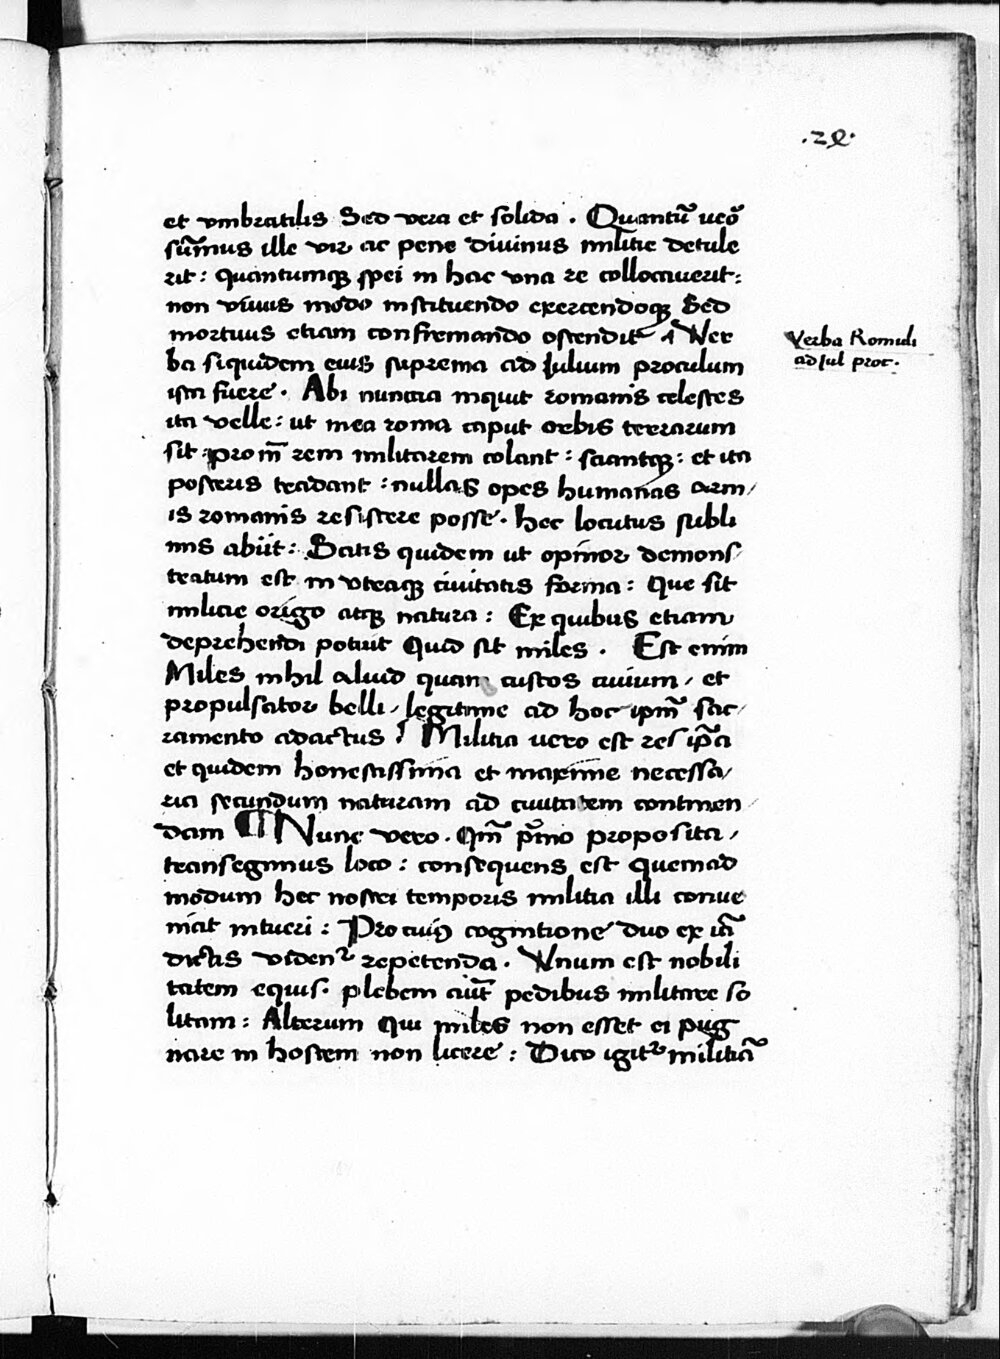 .28.
et vmbratilis Sed vera et solida . Quantū ueõ
sūmus ille vir ac pene divinus militie detule
rit : quantumqꝫ spei in hac una re collocaverit :
non vivus modo instituendo exercendoqꝫ Sed
mortuus etiam confremando ostendit . Ver
ba siquidem eius suprema ad Iulium proculum
ista fuere . Abi nuntia inquit romanis celestes
ita velle : ut mea roma caput orbis terrarum
sit : proin̄ rem militarem colant : sciantqꝫ : et ita
posteris tradant : nullas opes humanas arm/
is romanis resistere posse . hec locutus subli
mis abiit : Satis quidem ut opinor demons/
tratum est in vtraqꝫ civitatis forma : Que sit
militie origo atqꝫ natura : Ex quibus etiam
deprehendi potuit Quid sit miles . Est enim
Miles nihil aliud quam custos civium / et
propulsator belli / legitime ad hoc ipm̄ sac/
ramento adactus / Militia uero est res ip̄a
et quidem honestissima et maxime necessa/
ria secundum naturam ad civitatem continen/
dam ¶ Nunc vero . Qm̄ pͦmo proposita /
transegimus loco : consequens est Quemad
modum hec nostri temporis militia illi conue
niat intueri : Pro cuiꝰ cognitione duo ex iā
dictis videnᷣ repetenda . Vnum est nobili
tatem equis . plebem aūt pedibus militare so
litam : Alterum Qui miles non esset ei pug
nare in hostem non licere : Dico igitᷣ militiā
Verba Romuli
ad Iul proc .